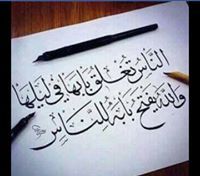 الناس تغلق بابها في ليلها
والله يفتح بابه للناس